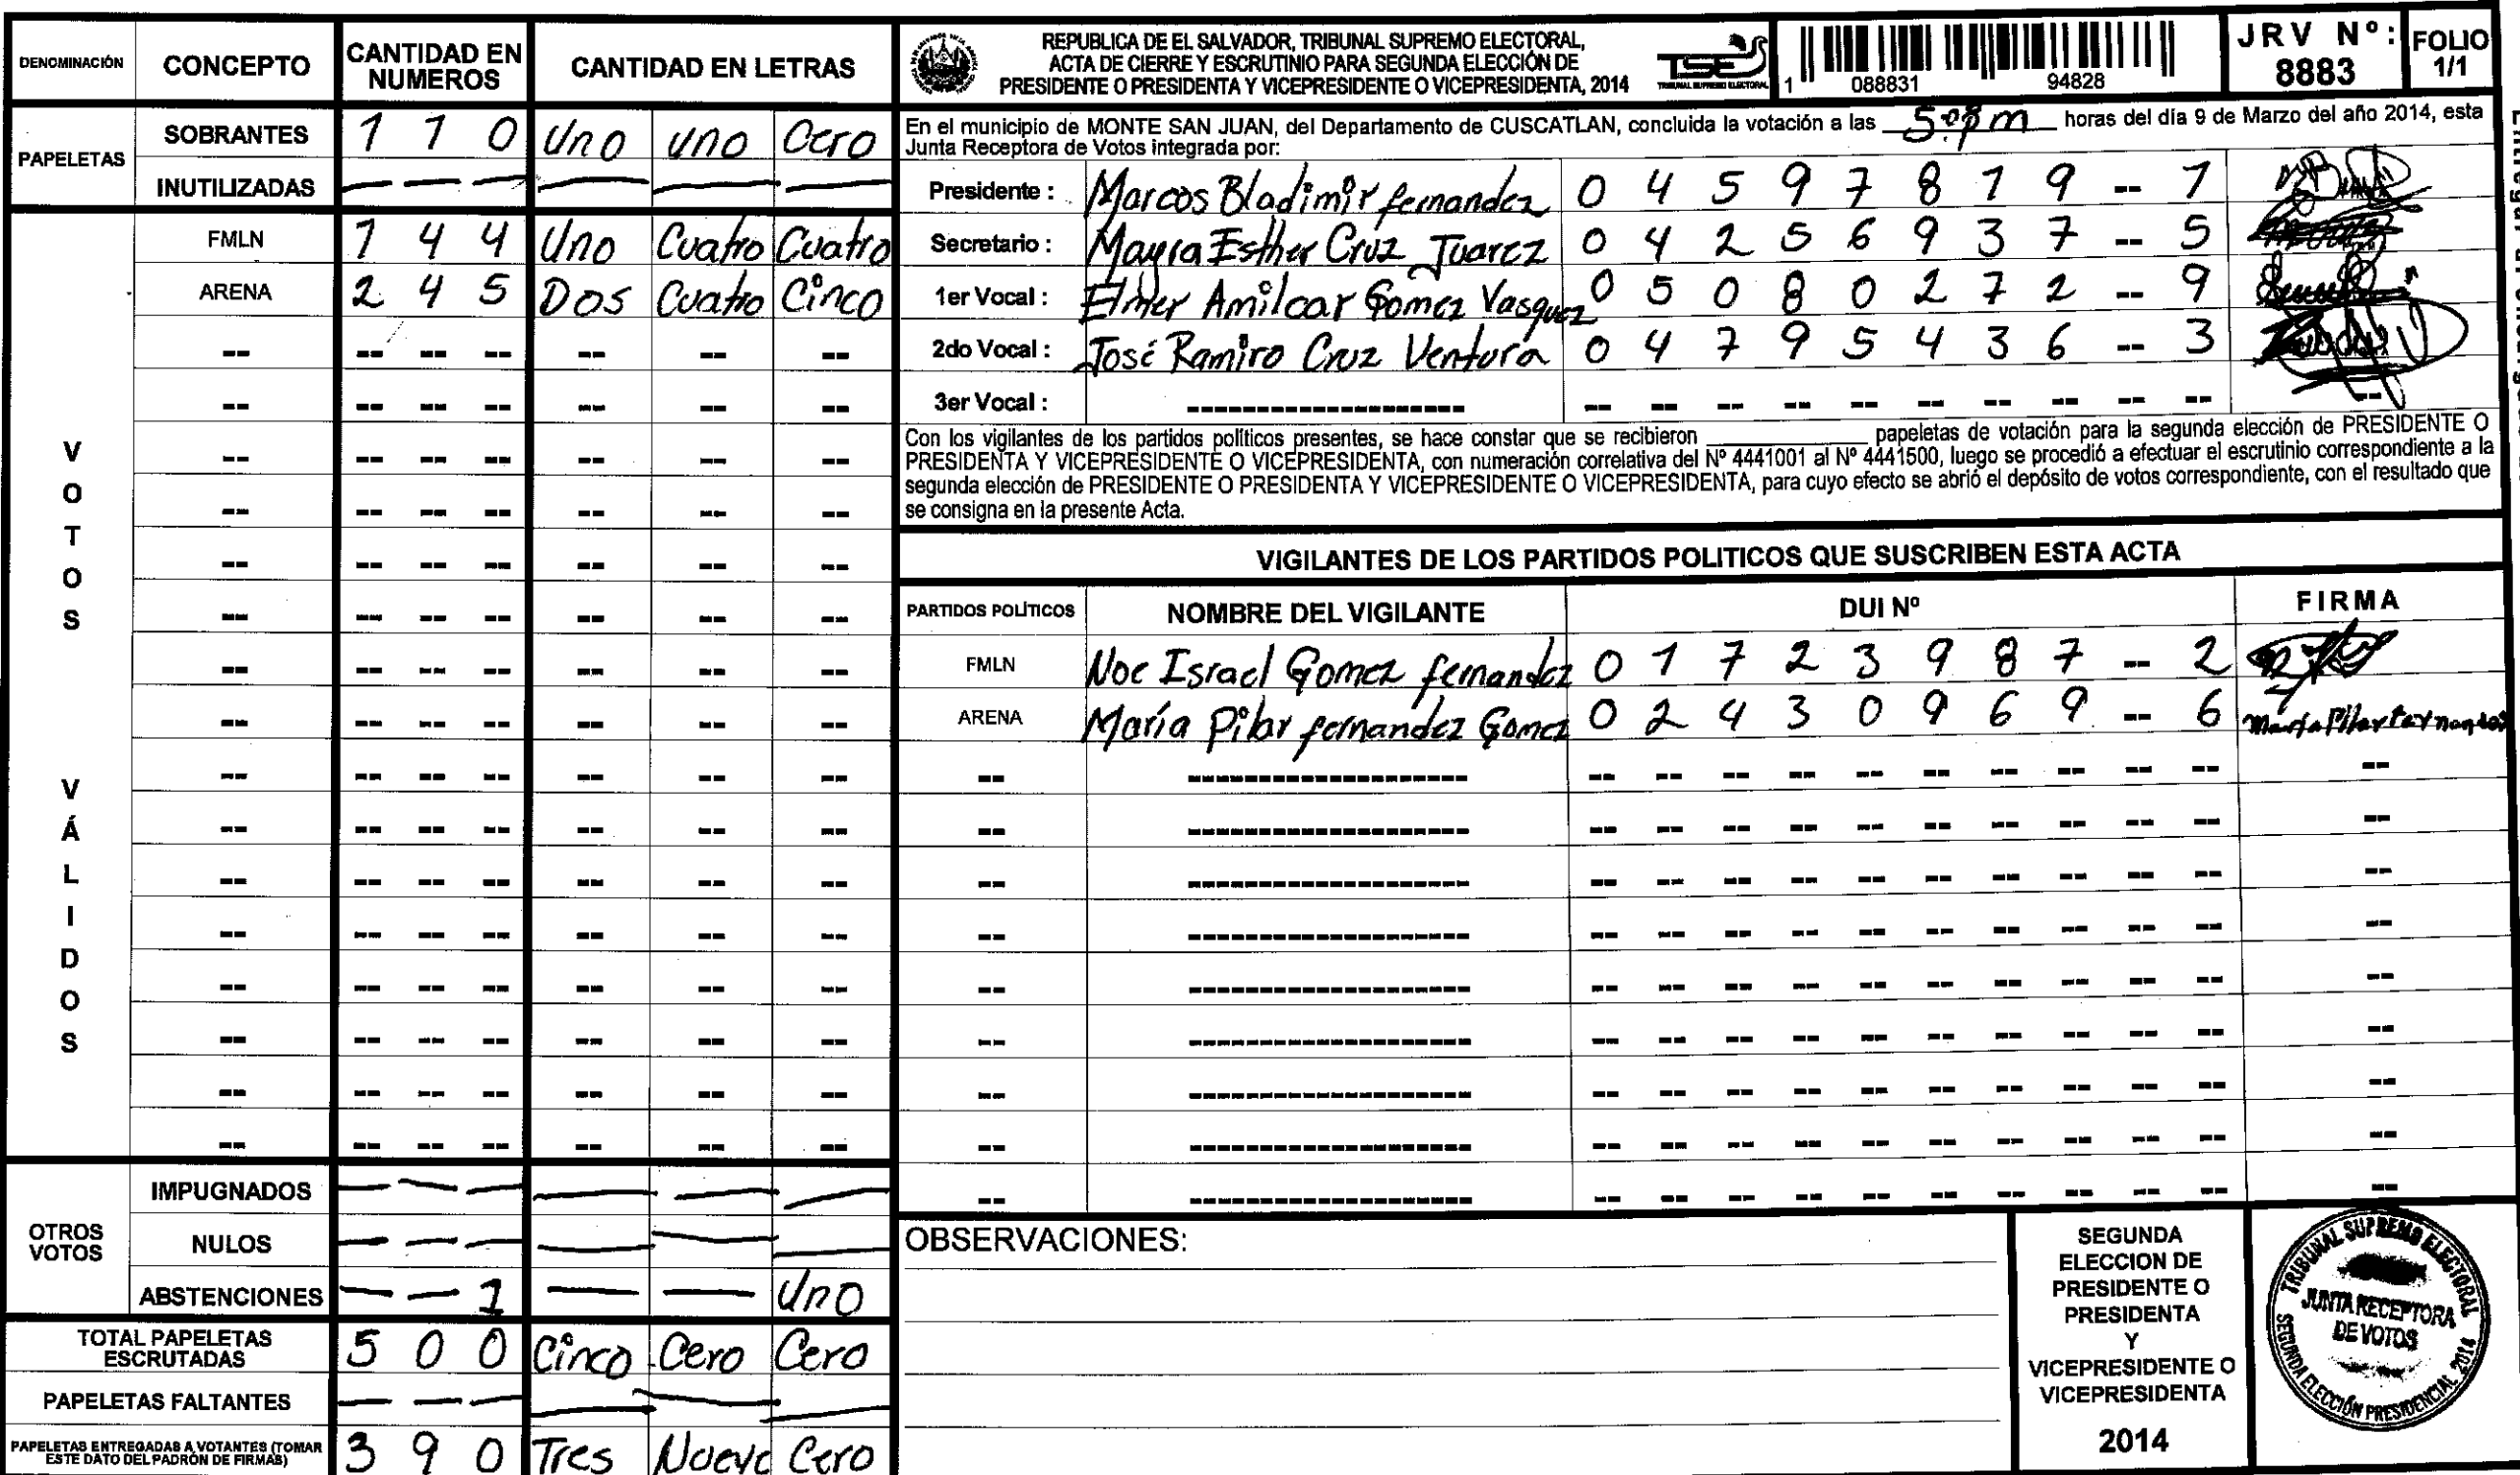 DENOMINACIÓN CONCEPTO CANTIDAD EN NUMEROS CANTIDAD EN LETRAS
PAPELETAS
SOBRANTES 1 1 0 Uno uno Cero
INUTILIZADAS — — — — — —
VOTOS VÁLIDOS
FMLN 1 4 4 Uno Cuatro Cuatro
ARENA 2 4 5 Dos Cuatro Cinco
OTROS VOTOS
IMPUGNADOS — — — — — —
NULOS — — — — — —
ABSTENCIONES — — 1 — — Uno
TOTAL PAPELETAS ESCRUTADAS 5 0 0 Cinco Cero Cero
PAPELETAS FALTANTES — — — — — —
PAPELETAS ENTREGADAS A VOTANTES (TOMAR ESTE DATO DEL PADRÓN DE FIRMAS) 3 9 0 Tres Nueve Cero
REPUBLICA DE EL SALVADOR, TRIBUNAL SUPREMO ELECTORAL,
ACTA DE CIERRE Y ESCRUTINIO PARA SEGUNDA ELECCIÓN DE
PRESIDENTE O PRESIDENTA Y VICEPRESIDENTE O VICEPRESIDENTA, 2014
TSE
TRIBUNAL SUPREMO ELECTORAL
1 088831 94828
JRV Nº: 8883
FOLIO 1/1
En el municipio de MONTE SAN JUAN, del Departamento de CUSCATLAN, concluida la votación a las horas del día 9 de Marzo del año 2014, esta
Junta Receptora de Votos integrada por:
Presidente : Marcos Bladimir fernandez 0 4 5 9 7 8 1 9 -- 1
Secretario : Mayra Esther Cruz Juarez 0 4 2 5 6 9 3 7 -- 5
1er Vocal : Elmer Amilcar Gomez Vasquez 0 5 0 8 0 2 7 2 -- 9
2do Vocal : José Ramiro Cruz Ventura 0 4 7 9 5 4 3 6 -- 3
3er Vocal :
Con los vigilantes de los partidos políticos presentes, se hace constar que se recibieron ________ papeletas de votación para la segunda elección de PRESIDENTE O
PRESIDENTA Y VICEPRESIDENTE O VICEPRESIDENTA, con numeración correlativa del Nº 4441001 al Nº 4441500, luego se procedió a efectuar el escrutinio correspondiente a la
segunda elección de PRESIDENTE O PRESIDENTA Y VICEPRESIDENTE O VICEPRESIDENTA, para cuyo efecto se abrió el depósito de votos correspondiente, con el resultado que
se consigna en la presente Acta.
VIGILANTES DE LOS PARTIDOS POLITICOS QUE SUSCRIBEN ESTA ACTA
PARTIDOS POLÍTICOS NOMBRE DEL VIGILANTE DUI Nº FIRMA
FMLN Noe Israel Gomez fernandez 0 1 7 2 3 9 8 7 -- 2
ARENA María Pilar fernandez Gomez 0 2 4 3 0 9 6 9 -- 6 María Pilar
OBSERVACIONES:
SEGUNDA
ELECCION DE
PRESIDENTE O
PRESIDENTA
Y
VICEPRESIDENTE O
VICEPRESIDENTA
2014
TRIBUNAL SUPREMO ELECTORAL
JUNTA RECEPTORA
DE VOTOS
SEGUNDA ELECCIÓN PRESIDENCIAL 2014